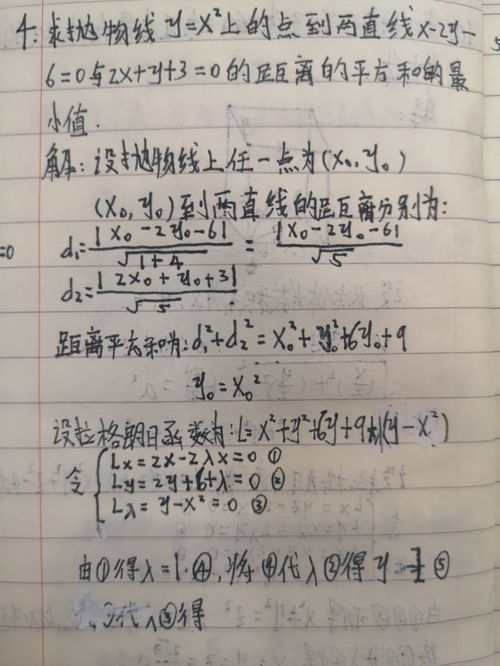 4. 求抛物线 y=x²上的点到两直线x-2y-
6=0与2x+y+3=0的距离的平方和的最
小值.
解:设抛物线上任一点为(x₀,y₀)
(x₀,y₀)到两直线的距离分别为:
=0
d₁=|x₀-2y₀-6|/√(1+4)=|x₀-2y₀-6|/√5
d₂=|2x₀+y₀+3|/√5
距离平方和为:d₁²+d₂²=x₀²+y₀²+6y₀+9
y₀=x₀²
设拉格朗日函数为:L=x²+y²+6y+9+λ(y-x²)
令 Lx=2x-2λx=0 ①
Ly=2y+6+λ=0 ②
Lλ=y-x²=0 ③
由①得λ=1.④,将④代入②得y ⑤
代入③得